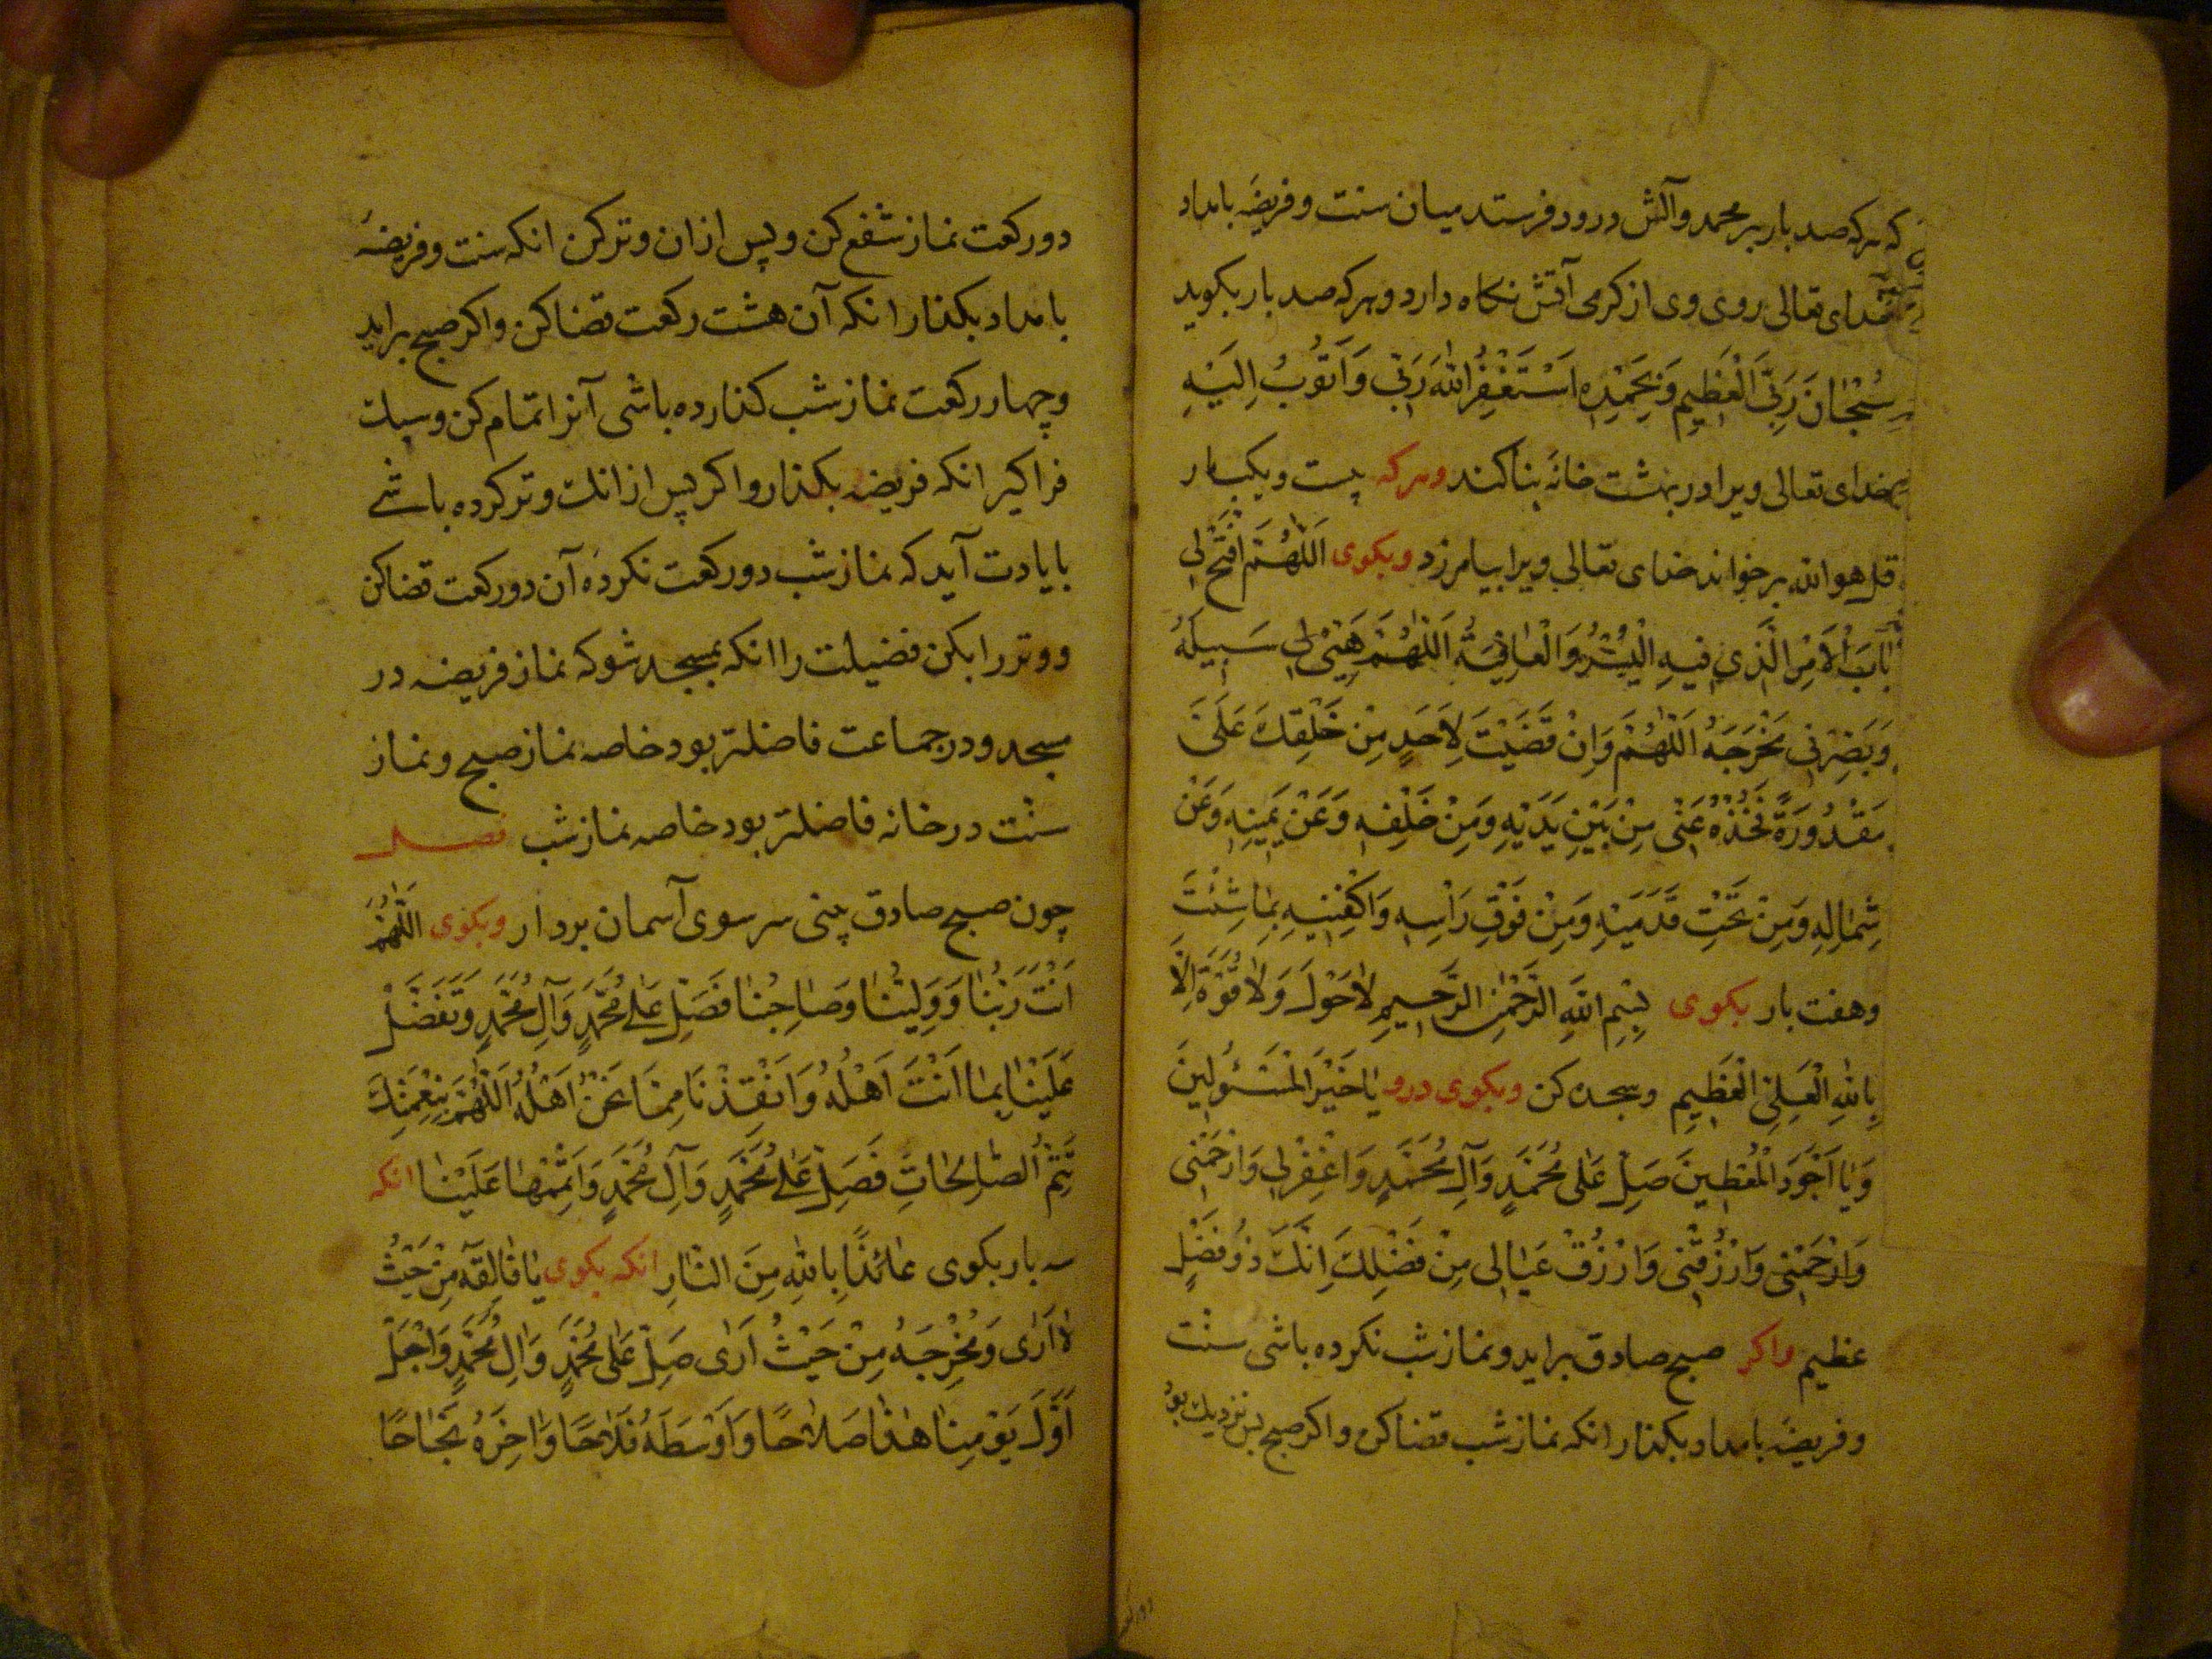 که هرکه صد بار بر محمد و آلش درود فرستد میان سنت و فریضۀ بامداد
خدای تعالی روی وی از کرمی آتش نکاه دارد و هرکه صد بار بکوید
سُبْحٰانَ رَبِّیَ الْعَظِیمِ وَبِحَمْدِهِ اَسْتَغْفِرُ اللّٰهَ رَبّی وَاَتُوبُ اِلَیْهِ
خدای تعالی ویرا در بهشت خانۀ بنا کند وهرکه بیست و یکبار
قل هو الله برخواند خدای تعالی ویرا بیامرزد وبکوی اَللّٰهُمَّ افْتَحْ لِی
بٰابَ الْاَمْرِ الَّذِی فِیهِ الْیُسْرُ وَالْعٰافِیَةُ اَللّٰهُمَّ هَیِّئْ لِی سَبِیلَهُ
وَبَصِّرْنِی مَخْرَجَهُ اَللّٰهُمَّ وَاِنْ قَضَیْتَ لِاَحَدٍ مِنْ خَلْقِكَ عَلَیَّ
مَقْدُورَةً فَخُذْهُ عَنّی مِنْ بَیْنِ یَدَیْهِ وَمِنْ خَلْفِهِ وَعَنْ یَمِینِهِ وَعَنْ
شِمٰالِهِ وَمِنْ تَحْتِ قَدَمَیْهِ وَمِنْ فَوْقِ رَاْسِهِ وَاکْفِنِیهِ بِمٰا شِئْتَ
وهفت بار بکوی بِسْمِ اللّٰهِ الرَّحْمٰنِ الرَّحِیمِ لٰا حَوْلَ وَلٰا قُوَّةَ اِلّٰا
بِاللّٰهِ الْعَلِیِّ الْعَظِیمِ وسجده کن وبکوی درو یٰا خَیْرَ الْمَسْئُولِینَ
وَیٰا اَجْوَدَ الْمُعْطِینَ صَلِّ عَلٰی مُحَمَّدٍ وَآلِ مُحَمَّدٍ وَاغْفِرْ لِی وَارْحَمْنی
وَارْحَمْنِی وَارْزُقْنِی وَارْزُقْ عَیٰالِی مِنْ فَضْلِكَ اِنَّكَ ذُو فَضْلٍ
عظیم واکر صبح صادق براید و نماز شب نکرده باشی سنت
و فریضۀ بامداد بکذار انکه نماز شب قضا کن و اکر صبح بس نزدیك بود
دو رکعت نماز شفع کن و پس از ان وتر کن انکه سنت و فریضۀ
بامداد بکذار انکه آن هشت رکعت قضا کن و اکر صبح براید
و چهار رکعت نماز شب کذارده باشی آنرا تمام کن و سبك
فراکیر انکه فریضه بکذار و اکر پس از انك وتر کرده باشی
بایادت آید که نماز شب دو رکعت نکردۀ آن دو رکعت قضا کن
و وتر را بکن فضیلت را انکه بمسجد شو که نماز فریضه در
مسجد و در جماعت فاضلتر بود خاصه نماز صبح و نماز
سنت در خانه فاضلتر بود خاصه نماز شب فصل
چون صبح صادق بینی سر سوی آسمان بردار وبکوی اللّٰهُمَّ
اَنْتَ رَبُّنٰا وَوَلِیُّنٰا وَصٰاحِبُنٰا فَصَلِّ عَلٰی مُحَمَّدٍ وَآلِ مُحَمَّدٍ وَتَفَضَّلْ
عَلَیْنٰا بِمٰا اَنْتَ اَهْلُهُ وَاَنْقِذْنَا مِمَّا نَحْنُ اَهْلُهُ اَللّٰهُمَّ بِنِعْمَتِكَ
تَتِمُّ الصّٰالِحٰاتِ فَصَلِّ عَلٰی مُحَمَّدٍ وَآلِ مُحَمَّدٍ وَاَتْمِمْهٰا عَلَیْنٰا انکه
سه بار بکوی عٰائِذًا بِاللّٰهِ مِنَ النّٰارِ انکه بکوی یٰا فٰالِقَهُ مِنْ حَیْثُ
لٰا اَرٰی وَمُخْرِجَهُ مِنْ حَیْثُ اَرٰی صَلِّ عَلٰی مُحَمَّدٍ وَاٰلِ مُحَمَّدٍ وَاجْعَلْ
اَوَّلَ یَوْمِنٰا هٰذٰا صَلٰاحًا وَاَوْسَطَهُ فَلٰاحًا وَاٰخِرَهُ نَجٰاحًا